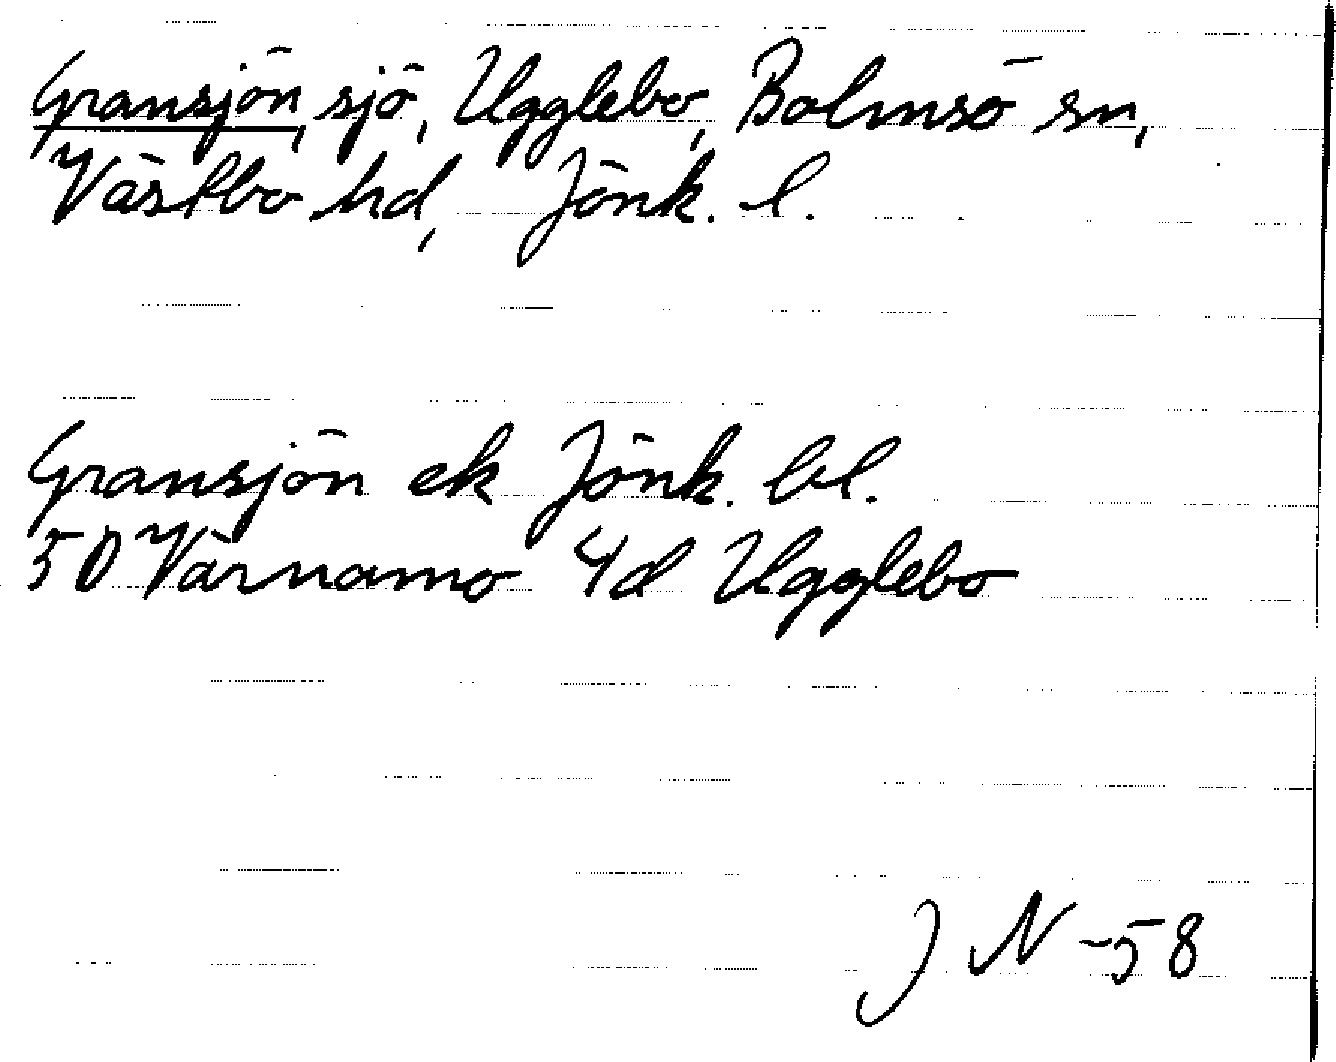 Gransjön, sjö, Ugglebo, Bolmsö sn,
Västbo hd, Jönk. l.
Gransjön ek Jönk. bl.
50 Värnamo 4d Ugglebo
J N -58